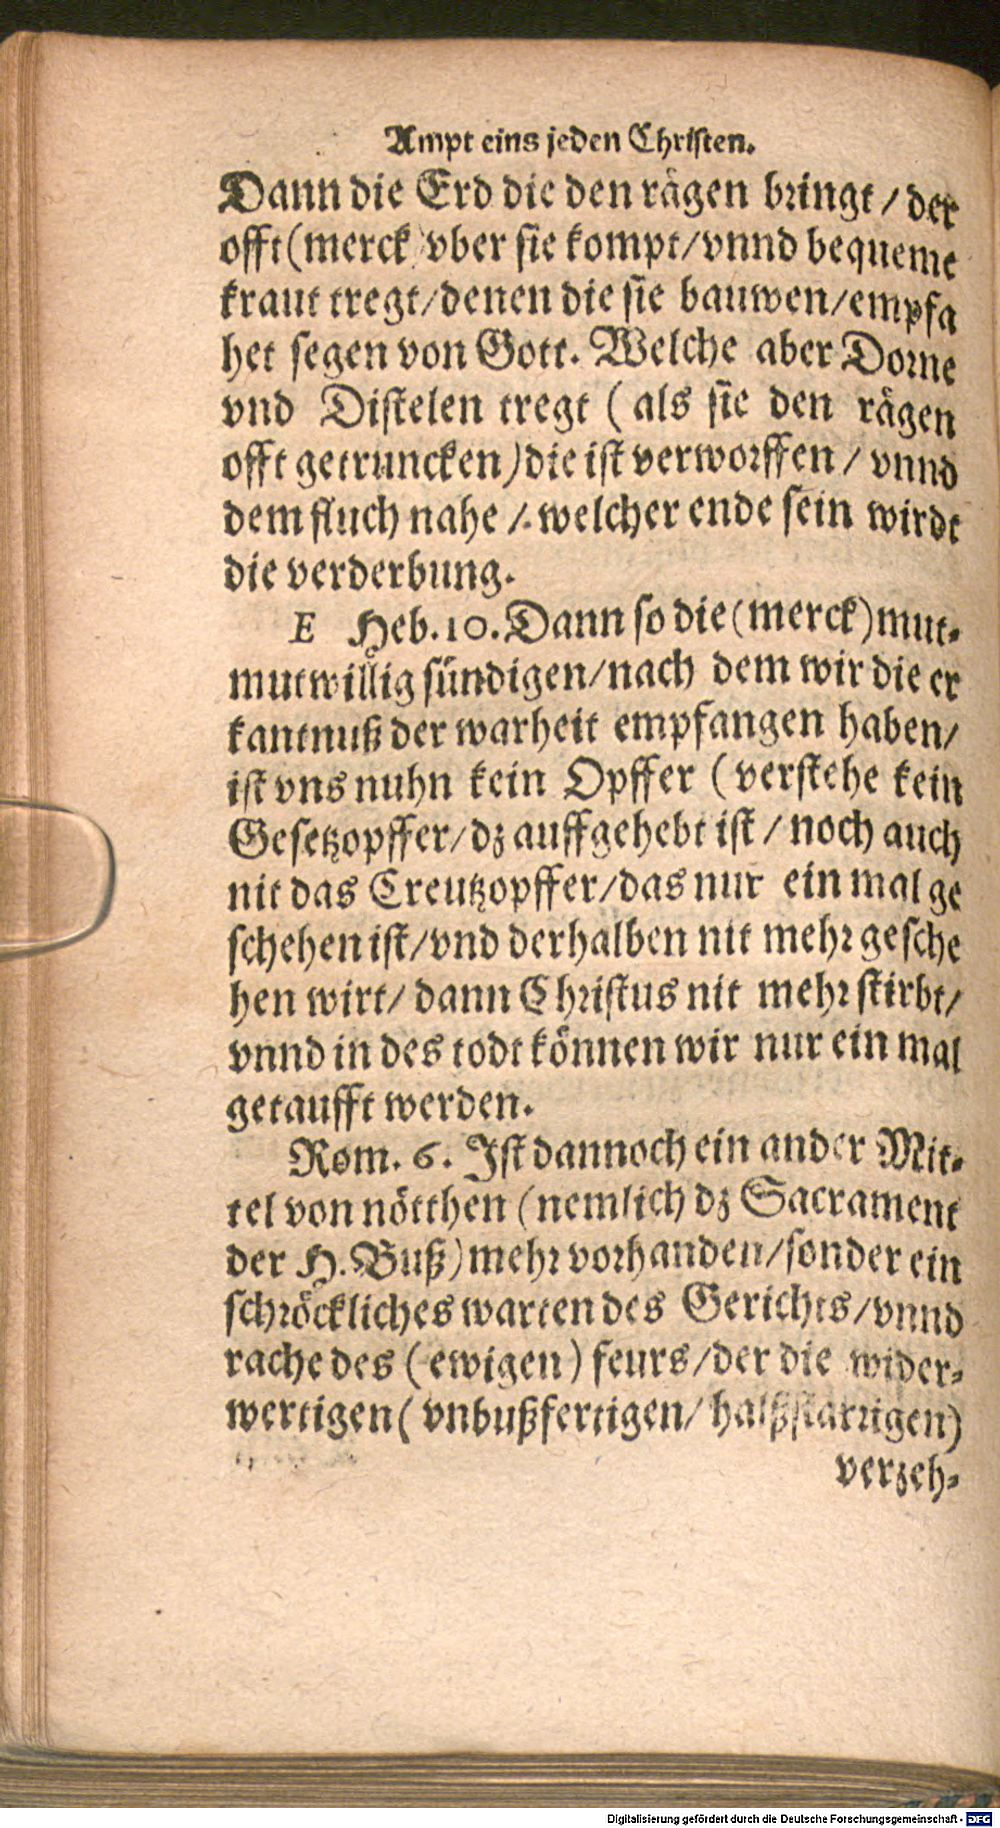 Ampt eins jeden Christen.
Dann die Erd die den rägen bringt / der
offt (merck) vber sie kompt / vnnd bequeme
kraut tregt / denen die sie bauwen / empfa
het segen von Gott. Welche aber Dorne
vnd Distelen tregt ( als sie den rägen
offt getruncken) die ist verworffen / vnnd
dem fluch nahe / welcher ende sein wirdt
die verderbung.
E Heb. 10. Dann so die (merck) mut-
mutwillig sündigen / nach dem wir die er
kantnuß der warheit empfangen haben /
ist vns nuhn kein Opffer ( verstehe kein
Gesetzopffer / dz auffgehebt ist / noch auch
nit das Creutzopffer / das nur ein mal ge
schehen ist / vnd derhalben nit mehr gesche
hen wirt / dann Christus nit mehr stirbt /
vnnd in des todt können wir nur ein mal
getaufft werden.
Rom. 6. Ist dannoch ein ander Mit-
tel von nötthen (nemlich dz Sacrament
der H. Buß) mehr vorhanden / sonder ein
schröckliches warten des Gerichts / vnnd
rache des ( ewigen) feurs / der die wider-
wertigen ( vnbußfertigen / halßstarrigen)
verzeh-
Digitalisierung gefördert durch die Deutsche Forschungsgemeinschaft - DFG